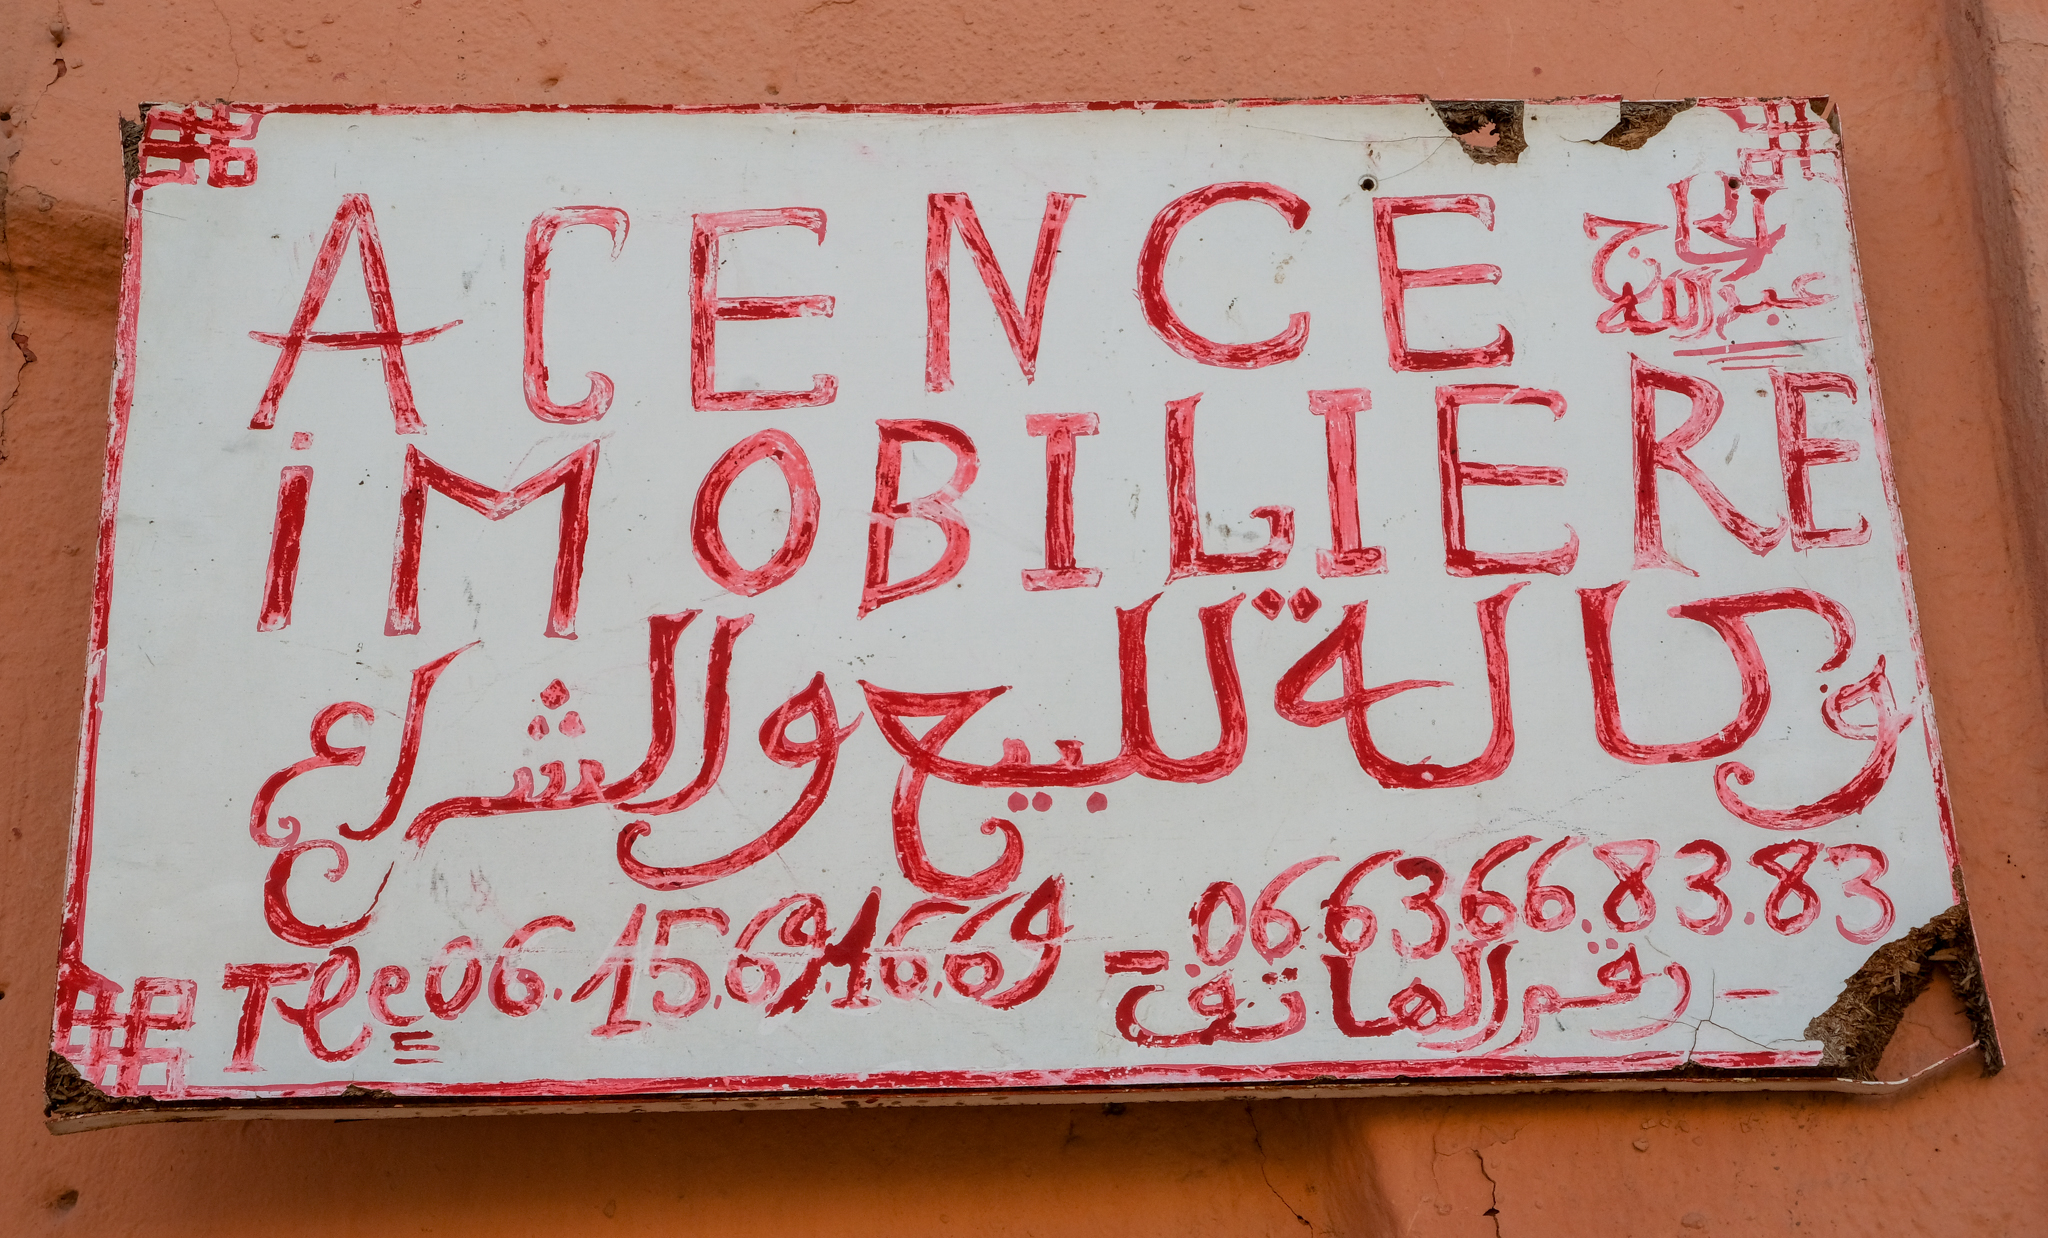 AGENCE
الحاج
عبد الله
iMOBILIERE
وكالة للبيع والشراء
Tle 06.15.69.16.69 = 06.63.66.83.83
رقم الهاتف